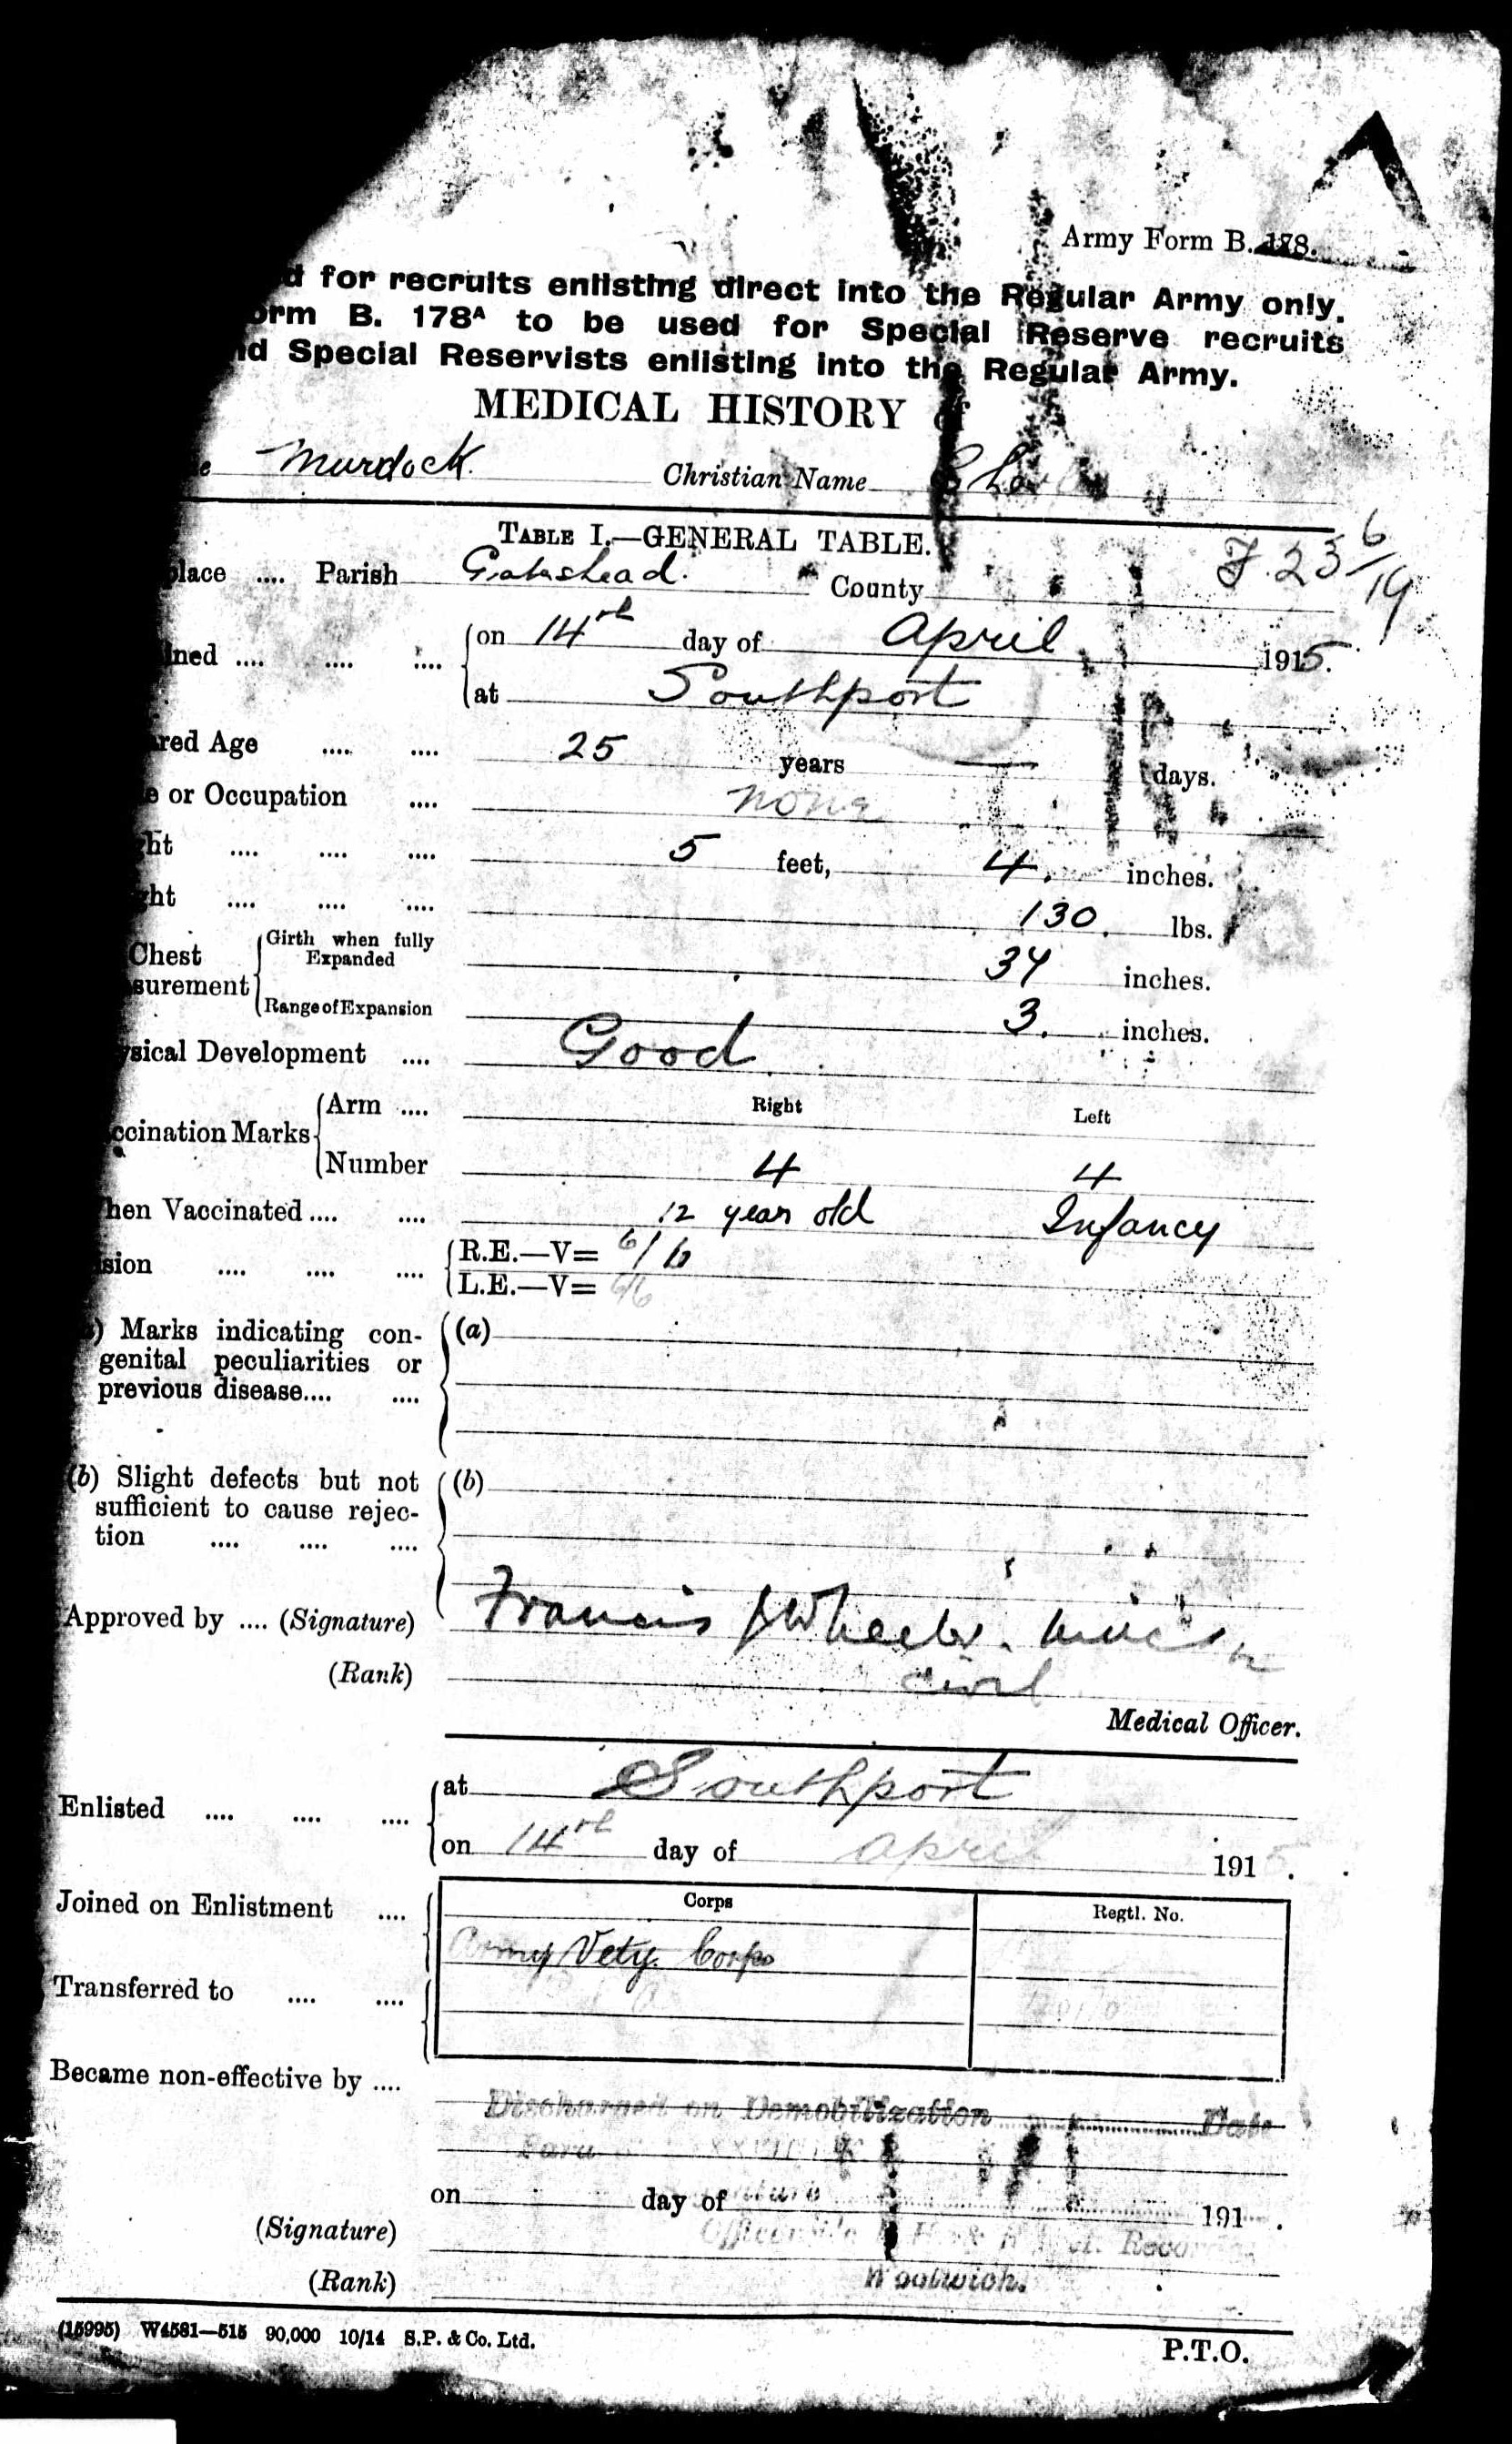 Army Form B. 178.
d for recruits enlisting direct into the Regular Army only.
orm B. 178A to be used for Special Reserve recruits
nd Special Reservists enlisting into the Regular Army.
MEDICAL HISTORY of
e Murdock. Christian Name
TABLE I.—GENERAL TABLE.
F. 23 6/19
place .... Parish Gateshead. County
ined .... .... .... on 14th day of April 1915.
at Southport
red Age .... .... 25 years — days.
e or Occupation .... none
ht .... .... .... 5 feet, 4. inches.
ght .... .... .... 130. lbs.
Chest surement Girth when fully Expanded 34 inches.
Range of Expansion 3. inches.
ysical Development .... Good.
ccination Marks Arm .... Right Left
Number 4 4
hen Vaccinated .... .... 12 year old Infancy
sion .... .... .... R.E.—V= 6/6
L.E.—V= 6/6
) Marks indicating con- (a)
genital peculiarities or
previous disease.... ....
(b) Slight defects but not (b)
sufficient to cause rejec-
tion .... .... ....
Approved by .... (Signature) Francis Wheeler.
(Rank) Civil
Medical Officer.
Enlisted .... .... .... at Southport
on 14th day of April 1915.
Corps Regtl. No.
Joined on Enlistment .... Army Vety. Corps
Transferred to .... ....
Became non-effective by ....
Discharged on Demobilization Date
Para
on day of 191 .
(Signature) Officer i/c Records
(Rank) Woolwich.
(15995) W4581—515 90,000 10/14 S.P. & Co. Ltd.
P.T.O.